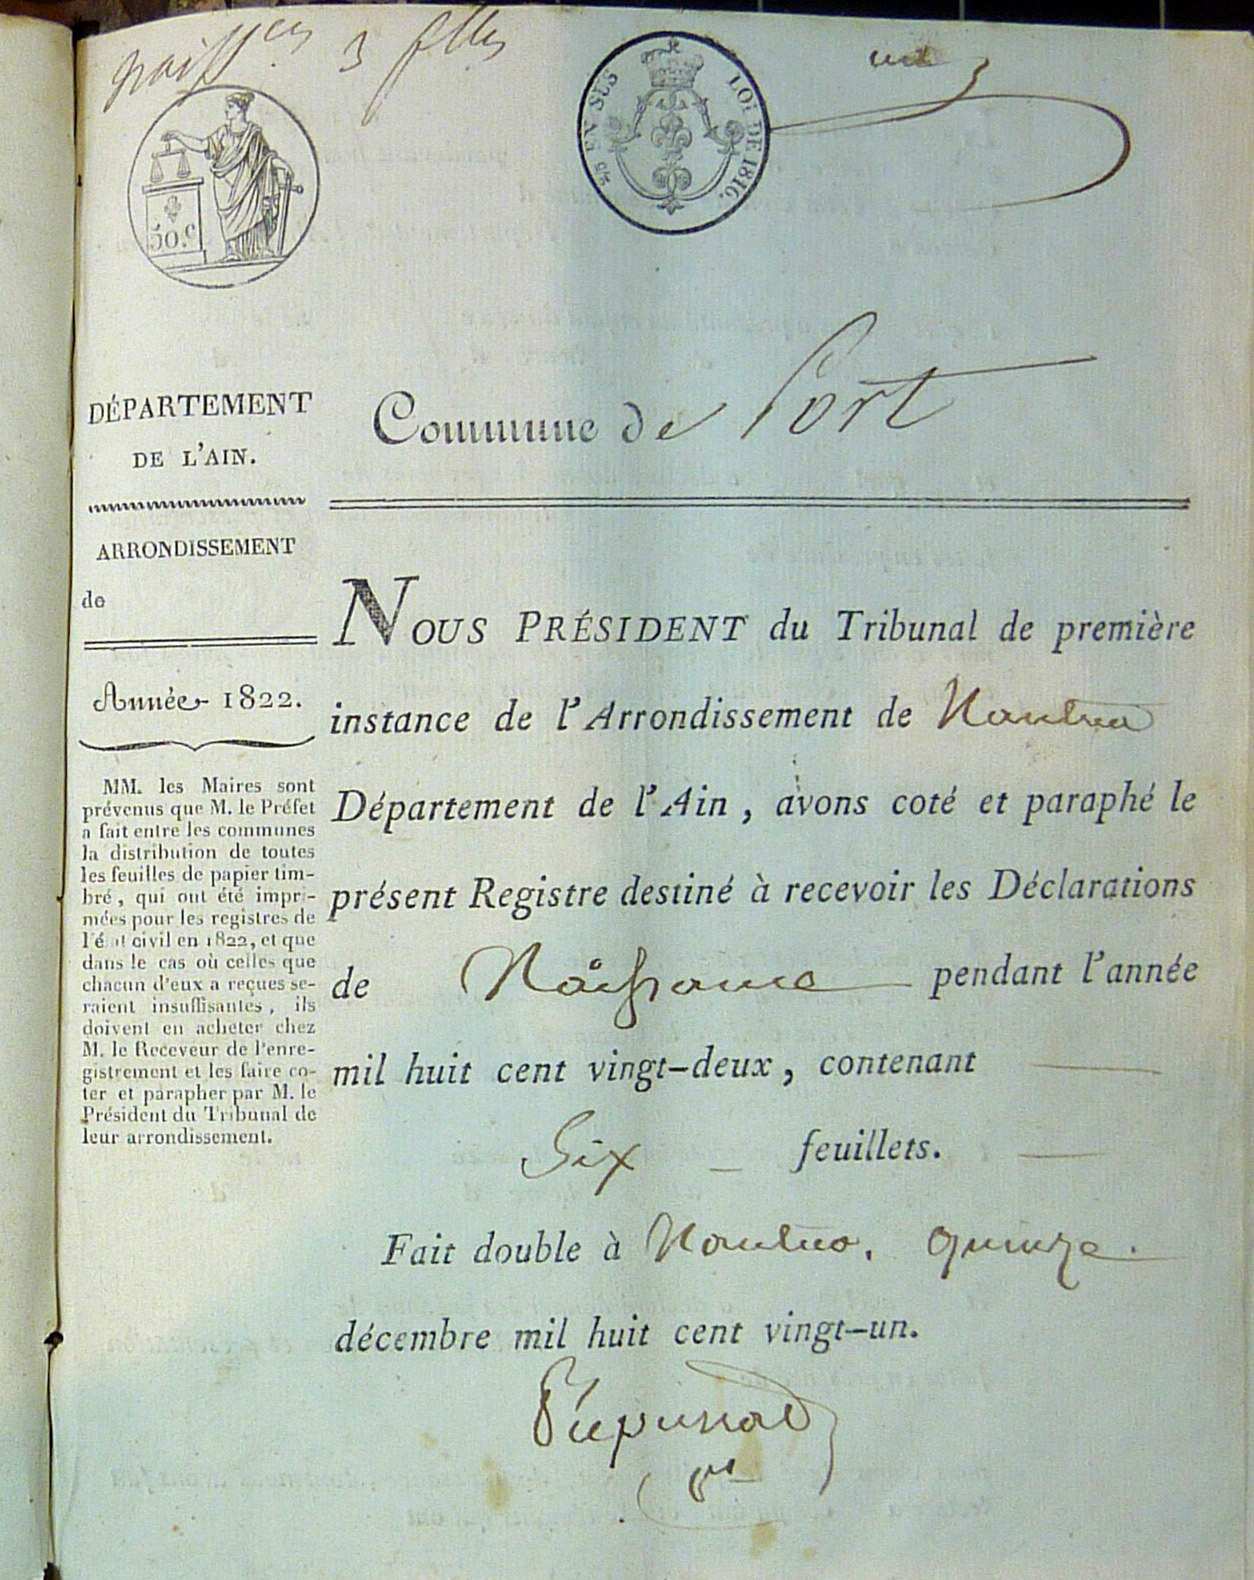 naiss.ces 3 flles
un
25 EN SUS
LOI DE 1816.
50.c
DÉPARTEMENT
DE L'AIN.
ARRONDISSEMENT
de
Année 1822.
MM. les Maires sont
prévenus que M. le Préfet
a fait entre les communes
la distribution de toutes
les feuilles de papier tim-
bré, qui ont été impri-
mées pour les registres de
l'état civil en 1822, et que
dans le cas où celles que
chacun d'eux a reçues se-
raient insuffisantes, ils
doivent en acheter chez
M. le Receveur de l'enre-
gistrement et les faire co-
ter et parapher par M. le
Président du Tribunal de
leur arrondissement.
Commune de Port
NOUS PRÉSIDENT du Tribunal de première
instance de l'Arrondissement de Nantua
Département de l'Ain, avons coté et paraphé le
présent Registre destiné à recevoir les Déclarations
de Naissance pendant l'année
mil huit cent vingt-deux, contenant
Six feuillets.
Fait double à Nantua, quinze
décembre mil huit cent vingt-un.